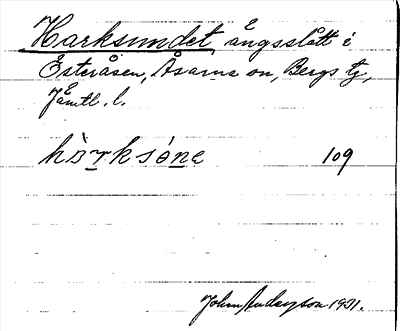 Harksundet, ängsslått i
Österåsen, Åsarne sn, Bergs tg,
Jämtl. l.
hàrksǿne 109
John Andersson 1931.